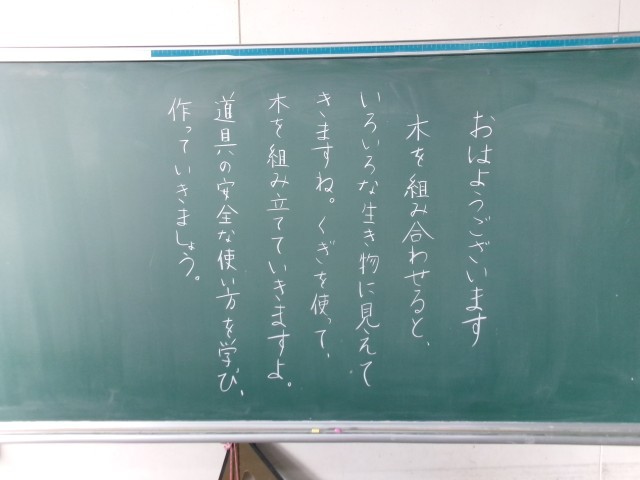 おはようございます
木を組み合わせると、
いろいろな生き物に見えて
きますね。くぎを使って、
木を組み立てていきますよ。
道具の安全な使い方を学び、
作っていきましょう。